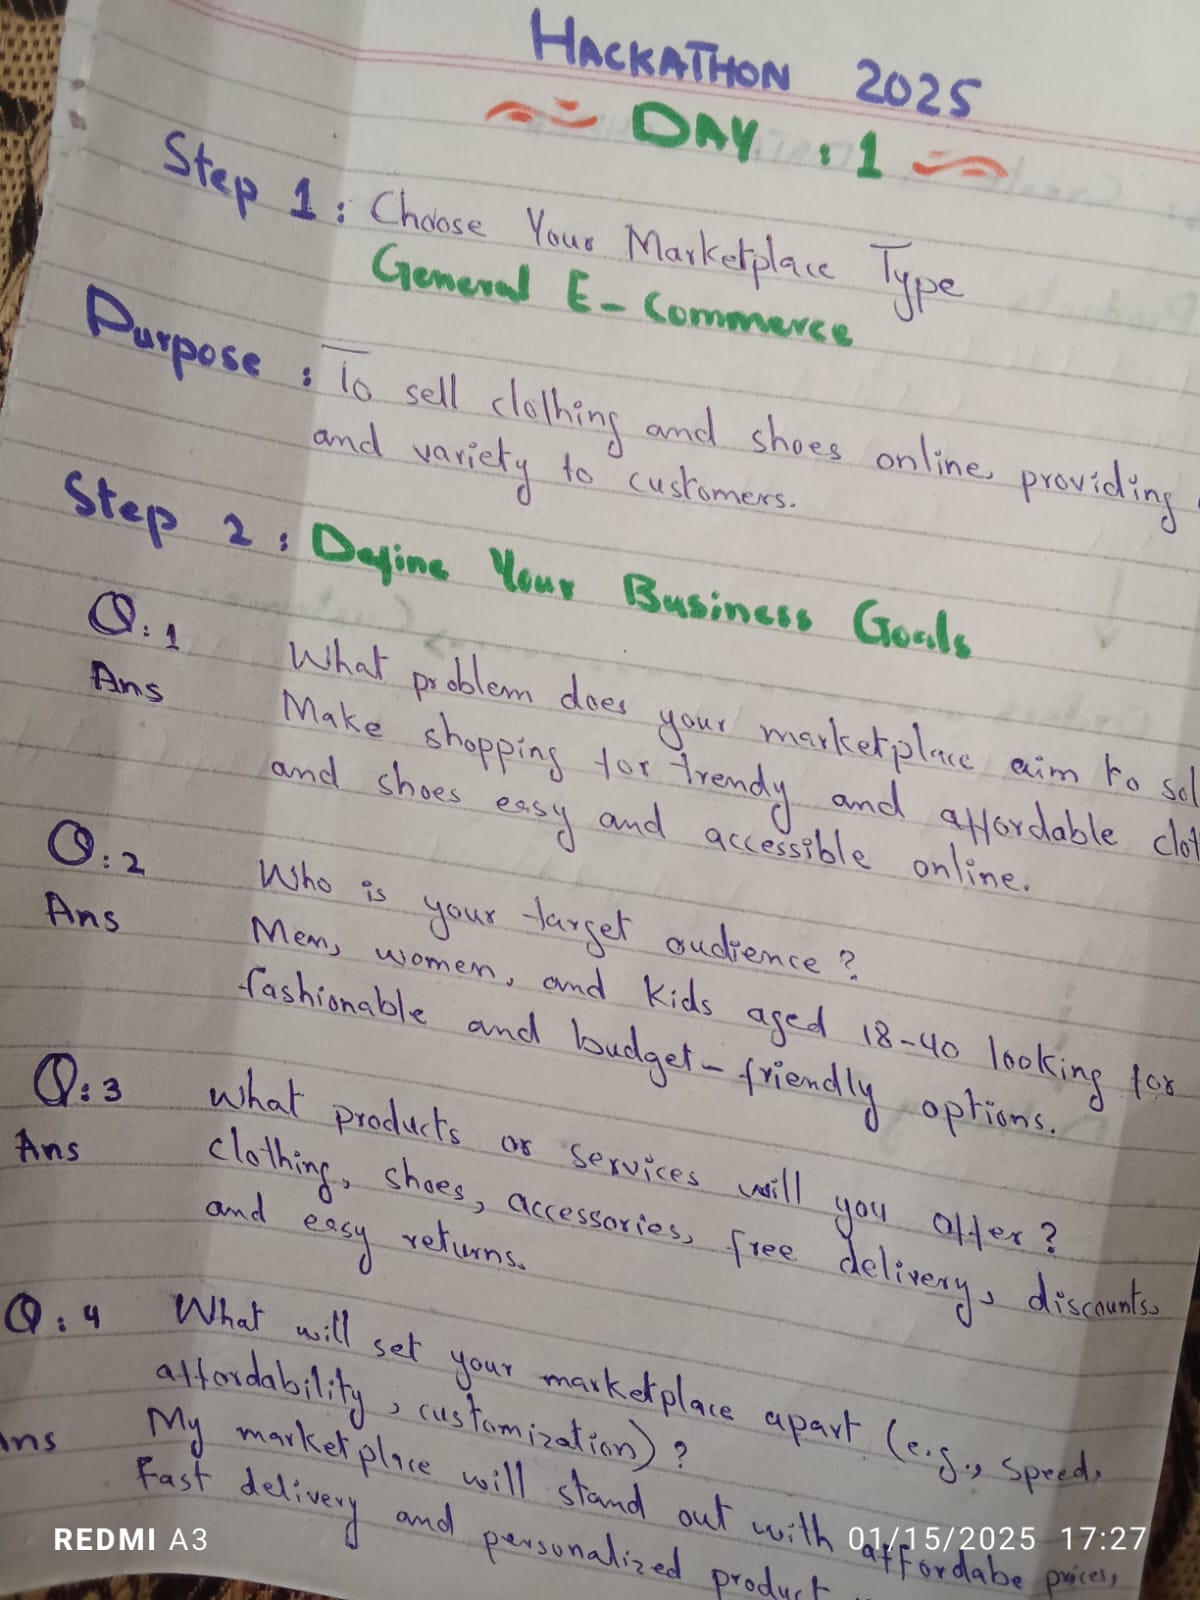 HACKATHON 2025
DAY : 1
Step 1 : Choose Your Marketplace Type
General E-Commerce
Purpose : To sell clothing and shoes online, providing
and variety to customers.
Step 2 : Define Your Business Goals
Q:1 What problem does your marketplace aim to sol
Ans Make shopping for trendy and affordable clot
and shoes easy and accessible online.
Q:2 Who is your target audience ?
Ans Men, women, and kids aged 18-40 looking for
fashionable and budget-friendly options.
Q:3 What products or services will you offer ?
Ans clothing, shoes, accessories, free delivery, discounts,
and easy returns.
Q:4 What will set your marketplace apart (e.g., speed,
affordability, customization) ?
Ans My marketplace will stand out with affordabe prices,
Fast delivery and personalized product
REDMI A3
01/15/2025 17:27